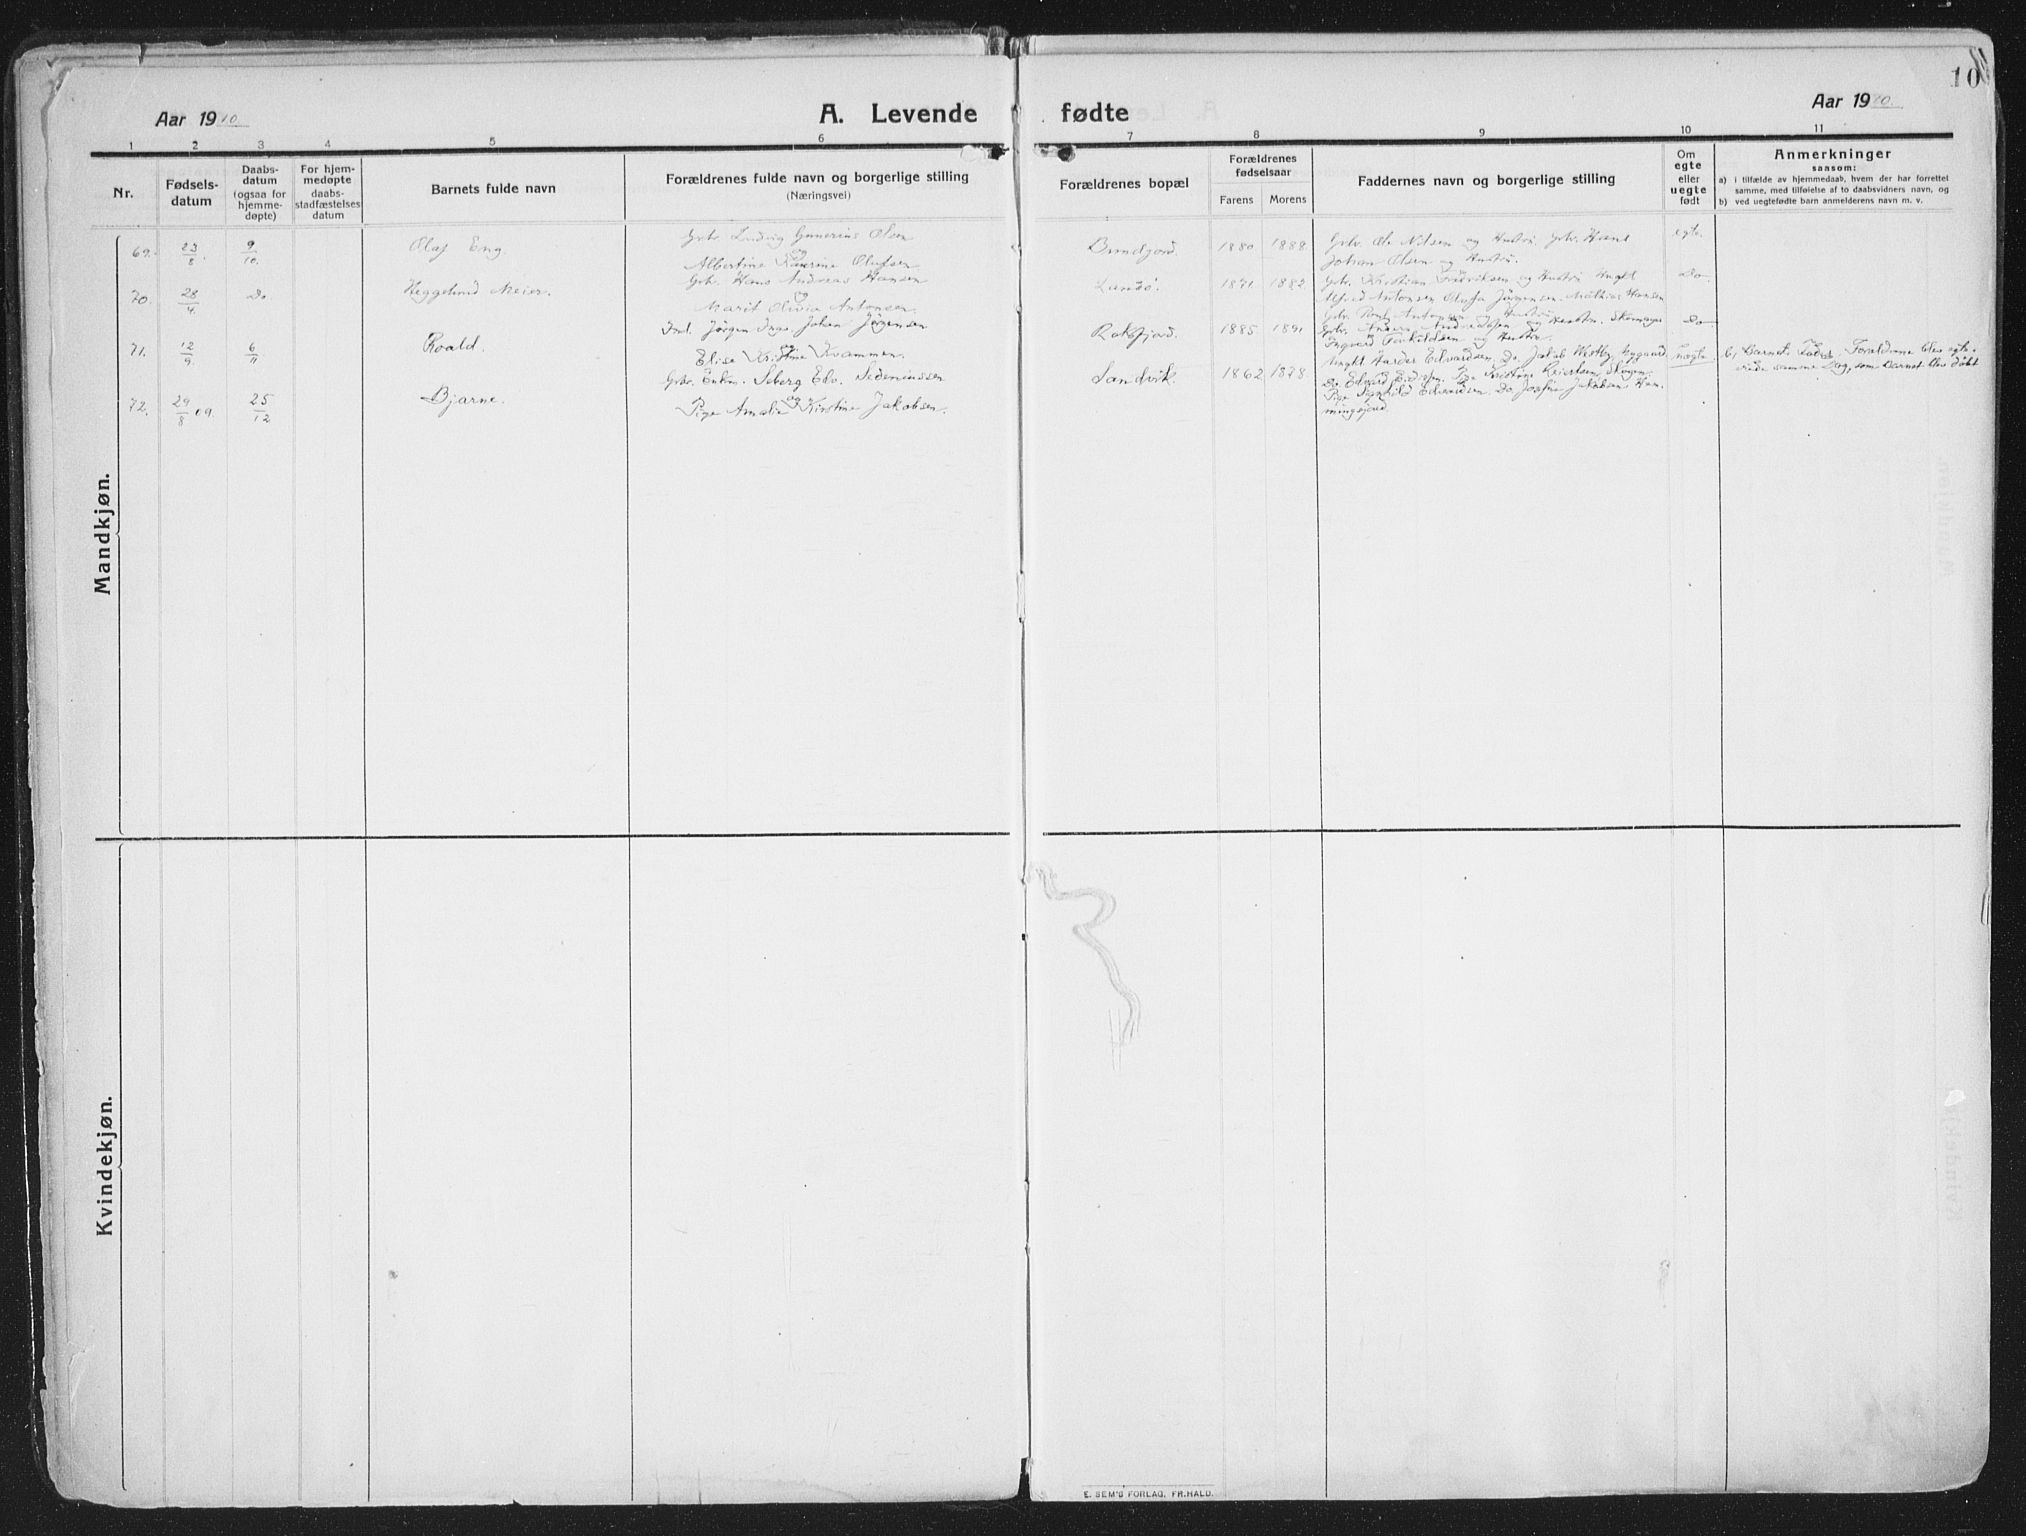 10
Aar 1910
A. Levende
fødte
Aar 1910.
1 2 3 4 5 6 7 8 9 10 11
Nr.
Fødsels-
datum
Daabs-
datum
(ogsaa for
hjemme-
døpte)
For hjem-
medøpte
daabs-
stadfæstelses
datum
Barnets fulde navn
Forældrenes fulde navn og borgerlige stilling
(Næringsvei)
Forældrenes bopæl
Forældrenes
fødselsaar
Farens Morens
Faddernes navn og borgerlige stilling
Om
egte
eller
uegte
født
Anmerkninger
saasom:
a) i tilfælde av hjemmedaab, hvem der har forrettet
samme, med tilføielse af to daabsvidners navn, og
b) ved uegtefødte barn anmelderens navn m. v.
Mandkjøn.
69. 23/8. 9/10. Olaf Eng.
Gbr. Ludvig Gunerius Olsen
og
Albertine Olufsen
1880 1888
Gbr. Ole Nilsen og Hustru. Gbr. Hans
Johan Olsen og Hustru.
egte.
70. 28/4. Do Meier.
Gbr. Hans Andreas Hansen
og
Marit Olivia Antonsen
Lanes. 1871 1882
Gbr. Kristian Fredriksen og Hustru Ungkl
Alfred Antonsen Olufa Jørgensen Mathias Hansen
Do
71. 12/9. 6/11 Roald.
Ind. Jørgen Inga. Johan Jørgensen
og
Elise Kristine Kvammen.
1885 1891
og Hustru. Skomager
og Hustru.
Do
72. 29/8 09. 25/12 Bjarne.
Gbr. Enkm. Seberg Edv. Sedeniussen
og
Pige Amalie Kirstine Jakobsen.
Sandvik. 1862 1878
Ungkl Harder Edvardsen. Do. Jakob Westby, Nygaard
Do. Edvard Pige Kristine
Pige Edvardsen. Do. Josefine Jakobsen.
mingsjord.
uegte
b, Barnets Fader. Forældrene blev egte-
viede samme Dag, som Barnet blev døbt
Kvindekjøn.
E. SEM'S FORLAG, FR.HALD.